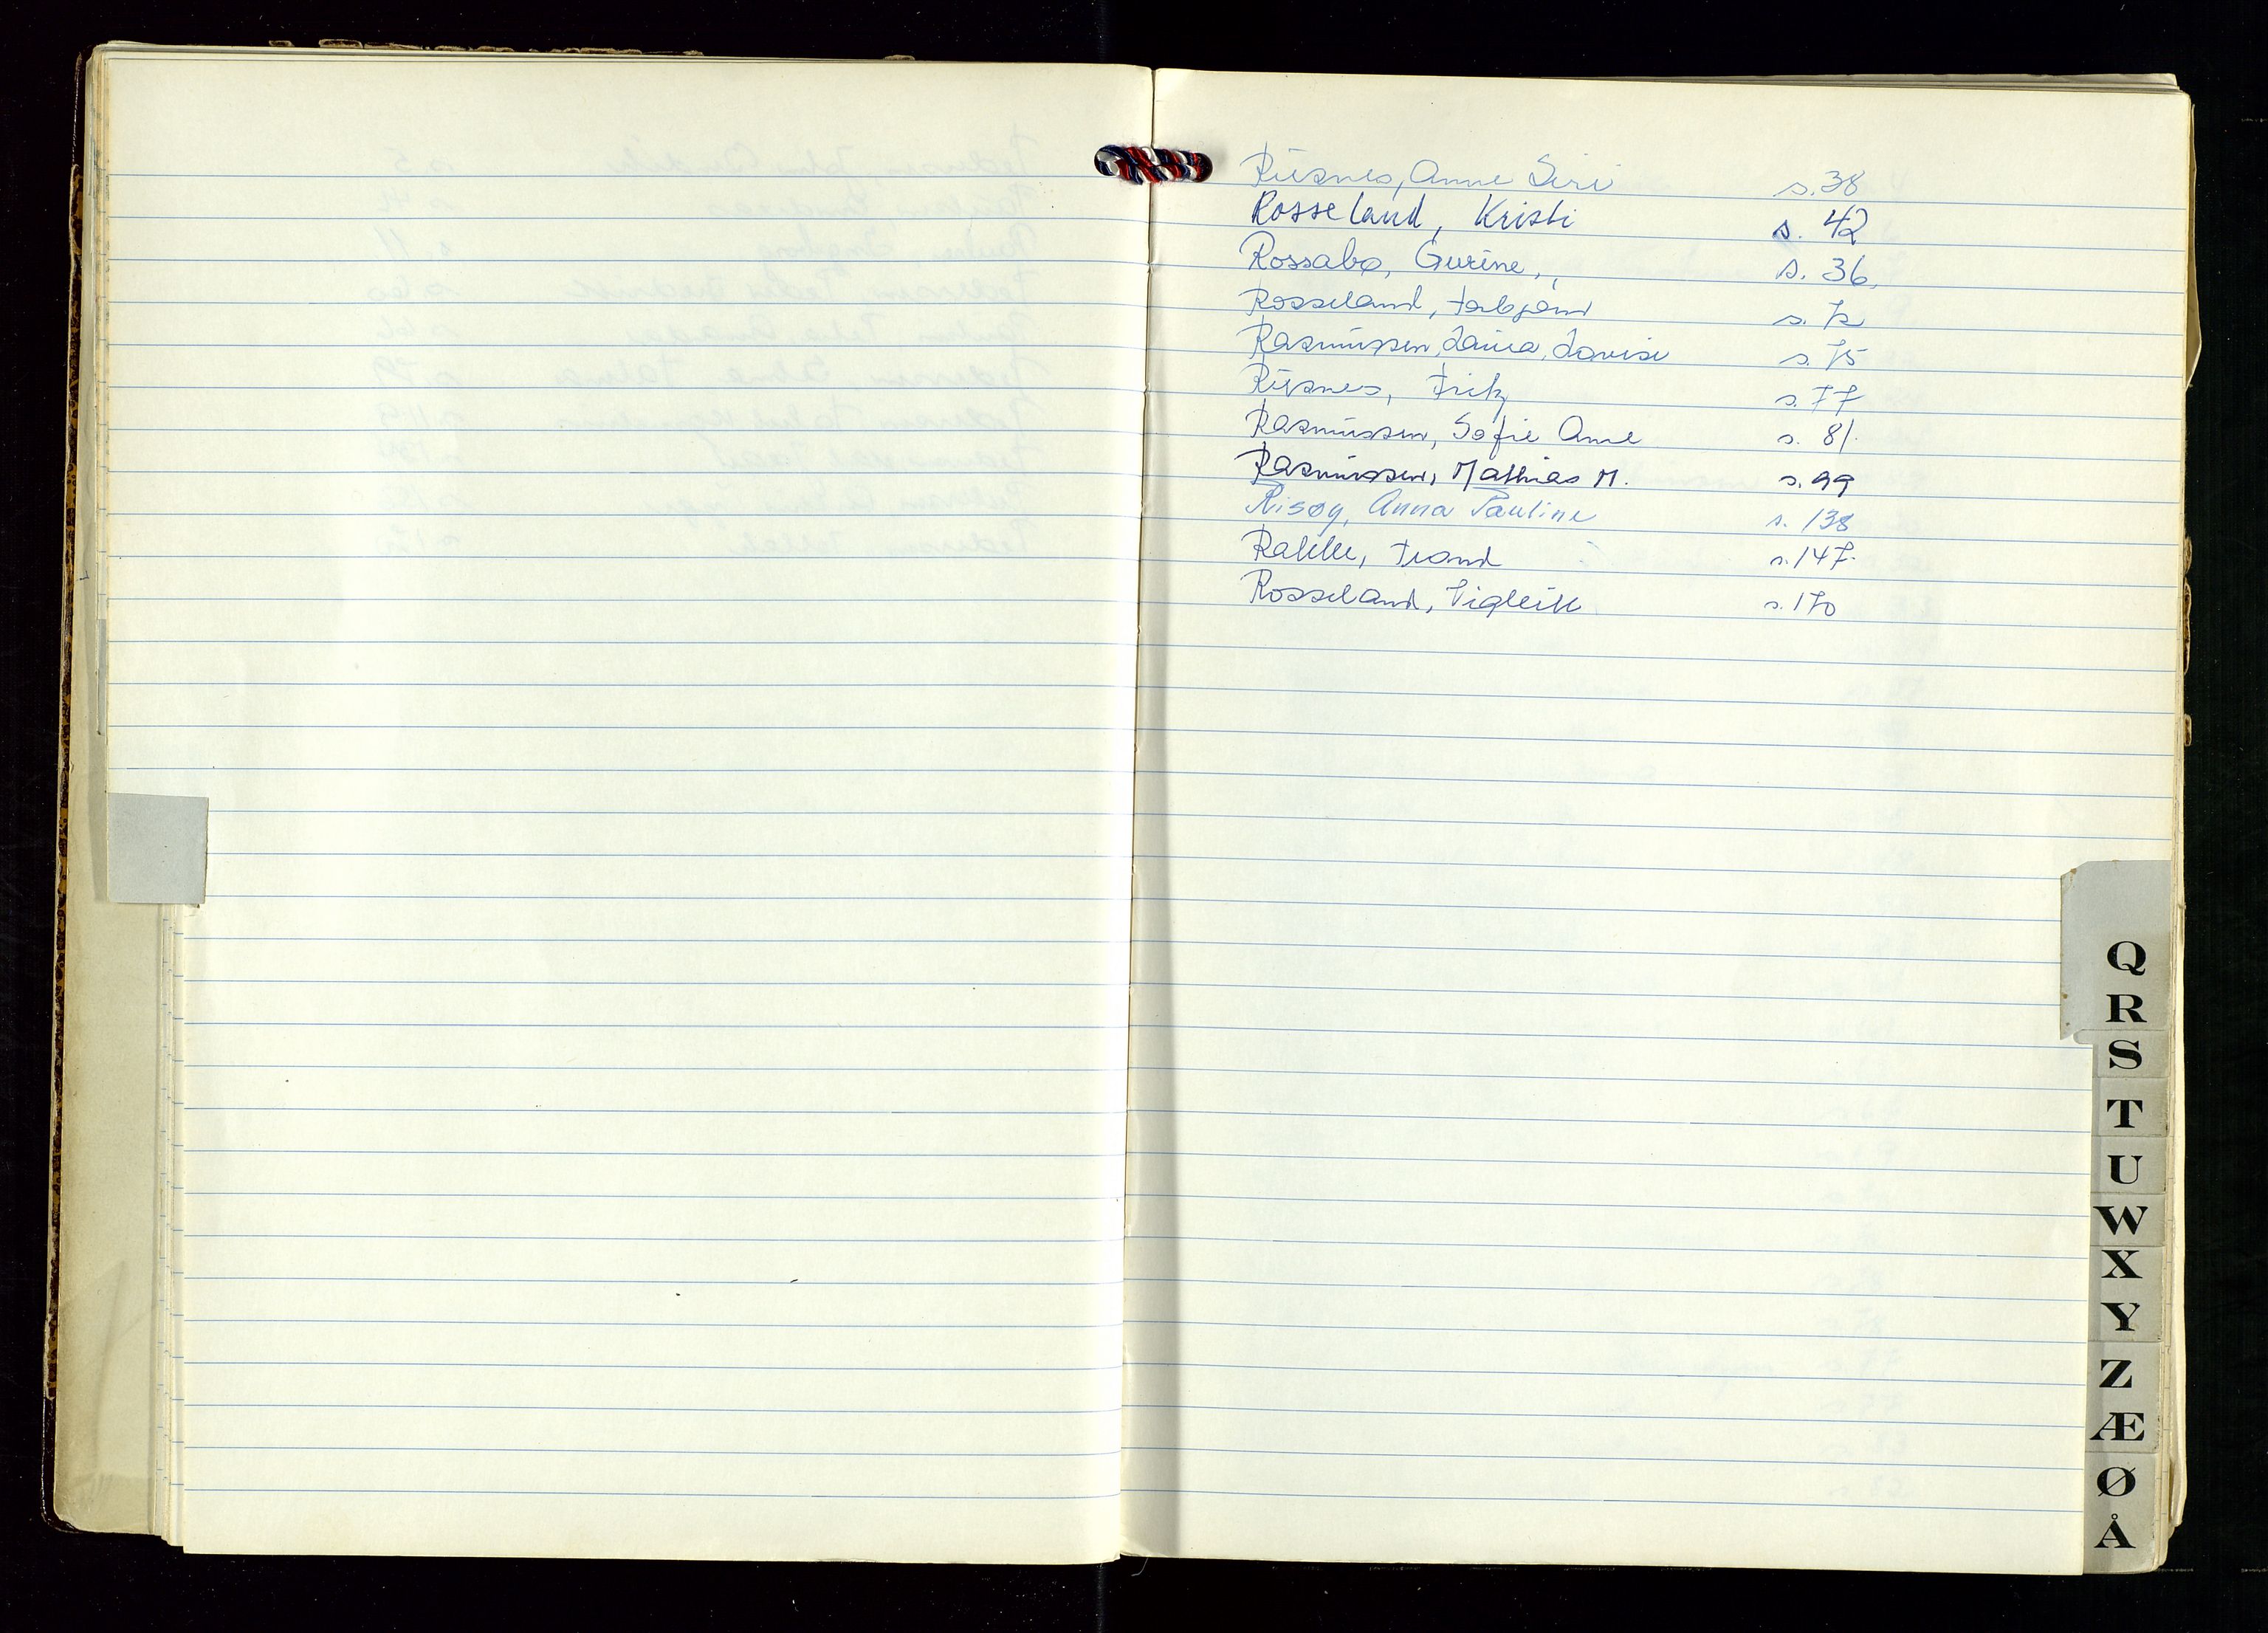 Risnes, Anne Siri s. 38
Rosseland, Kristi s. 42
Rossabø, Gurine, s. 36,
Rosseland, Torbjørn s. 72
Rasmussen, Laura Lovise s. 75
Risnes, Fritz s. 77
Rasmussen, Sofie Anne s. 81.
Rasmussen, Mathias M. s. 99
Risøy, Anna Pauline s. 138
Rakke, Trond s. 147.
Rosseland, Vigleik s. 170
Q
R
S
T
U
W
X
Y
Z
Æ
Ø
Å